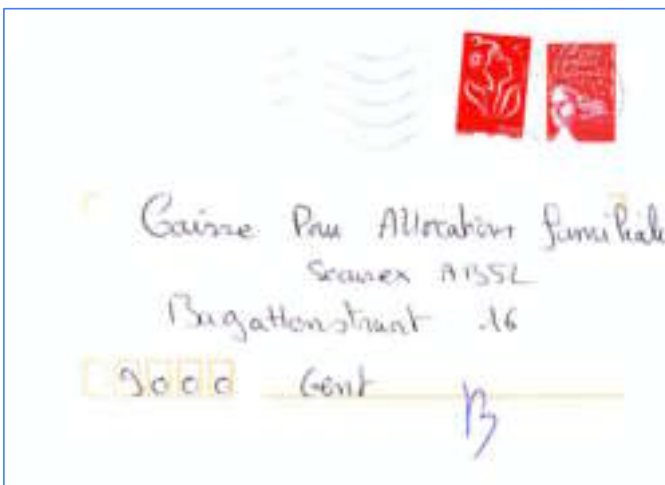 Caisse Pour Allocation familiale
Securex ABSL
Bagattenstraat 16
9000 Gent
B